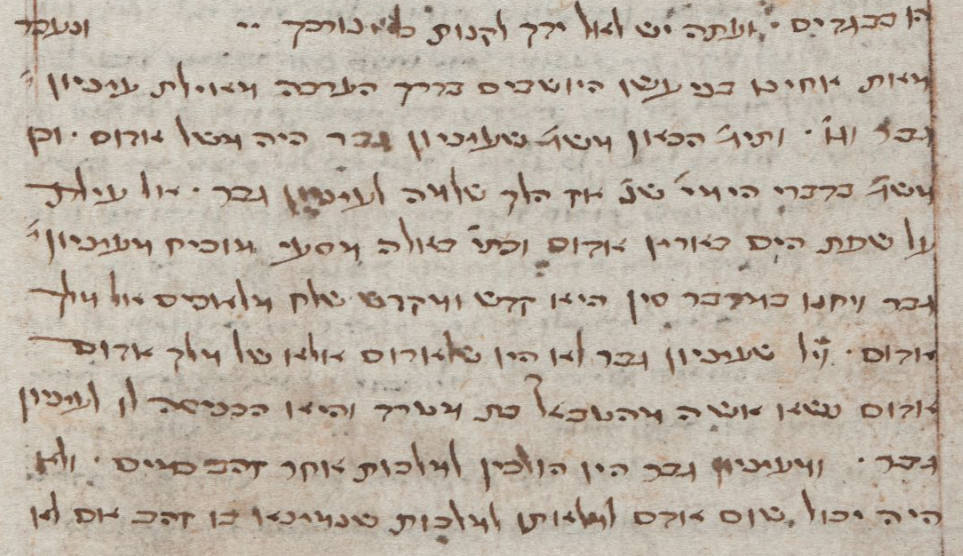 הן בבגדים · ועתה יש לאל ידך לקנות כל צורכך ·· ונעבר
מאת אחינו בני עשו היושבים בדרך הערבה מאילת עציון
גבר וג' · ותי' הגאון משי' שעציון גבר היה משל אדום · וכן
משי' בדברי הימי' שנ' אז הלך שלמה לעציון גבר · אל אילת
על שפת הים בארץ אדום וכתי' באלה מסעי מוכיח מעציון
גבר ויחנו במדבר סין היא קדש ומקדש שלח מלאכים אל מלך
אדום · וי'ל שעציון גבר לא היו שלאדום אלא של מלך אדום
אדום נשא אשה מהטבאל בת מטרד והיא הכניסה לו לעציון
גבר · ומעציון גבר היו הולכין למלכות אחר זהב פנים · ולא
היה יכול שום אדם למלאותן למלכות שנמצאו בו זהב אם לא